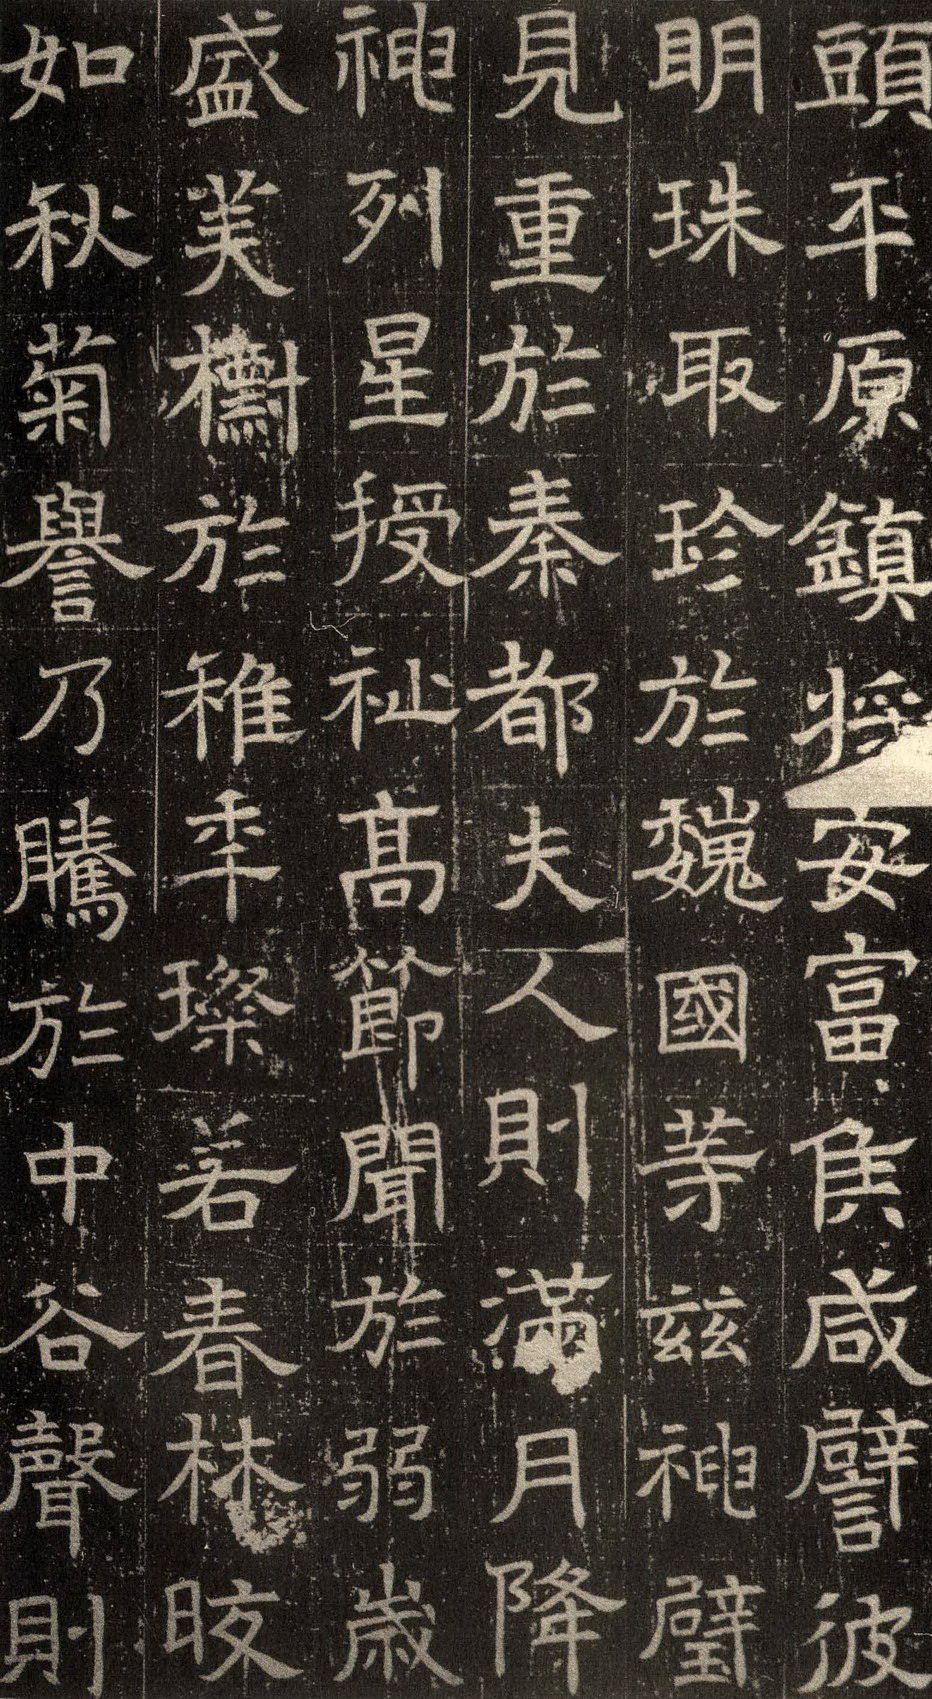 頭平原鎮將安富侯咸譬彼
明珠取珍於魏國等茲神璧
見重於秦都夫人則滿月降
神列星授祉高節聞於弱歲
盛美樹於稚年璨若春林晈
如秋菊譽乃騰於中谷聲則